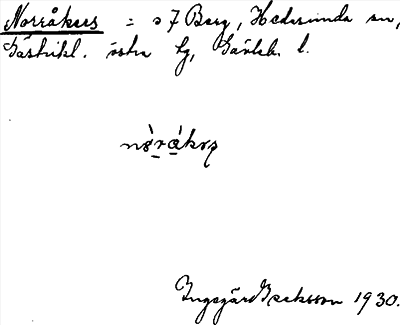 Norråkers = s 7 Berg, Hedesunda sn,
Gästrikl. östra tg, Gävleb. l.
Ingegärd Isaksson 1930.